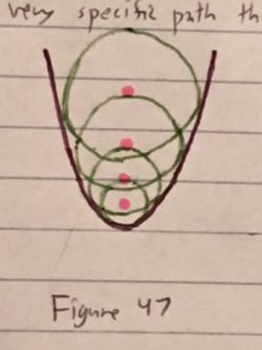 very specific path th
Figure 47